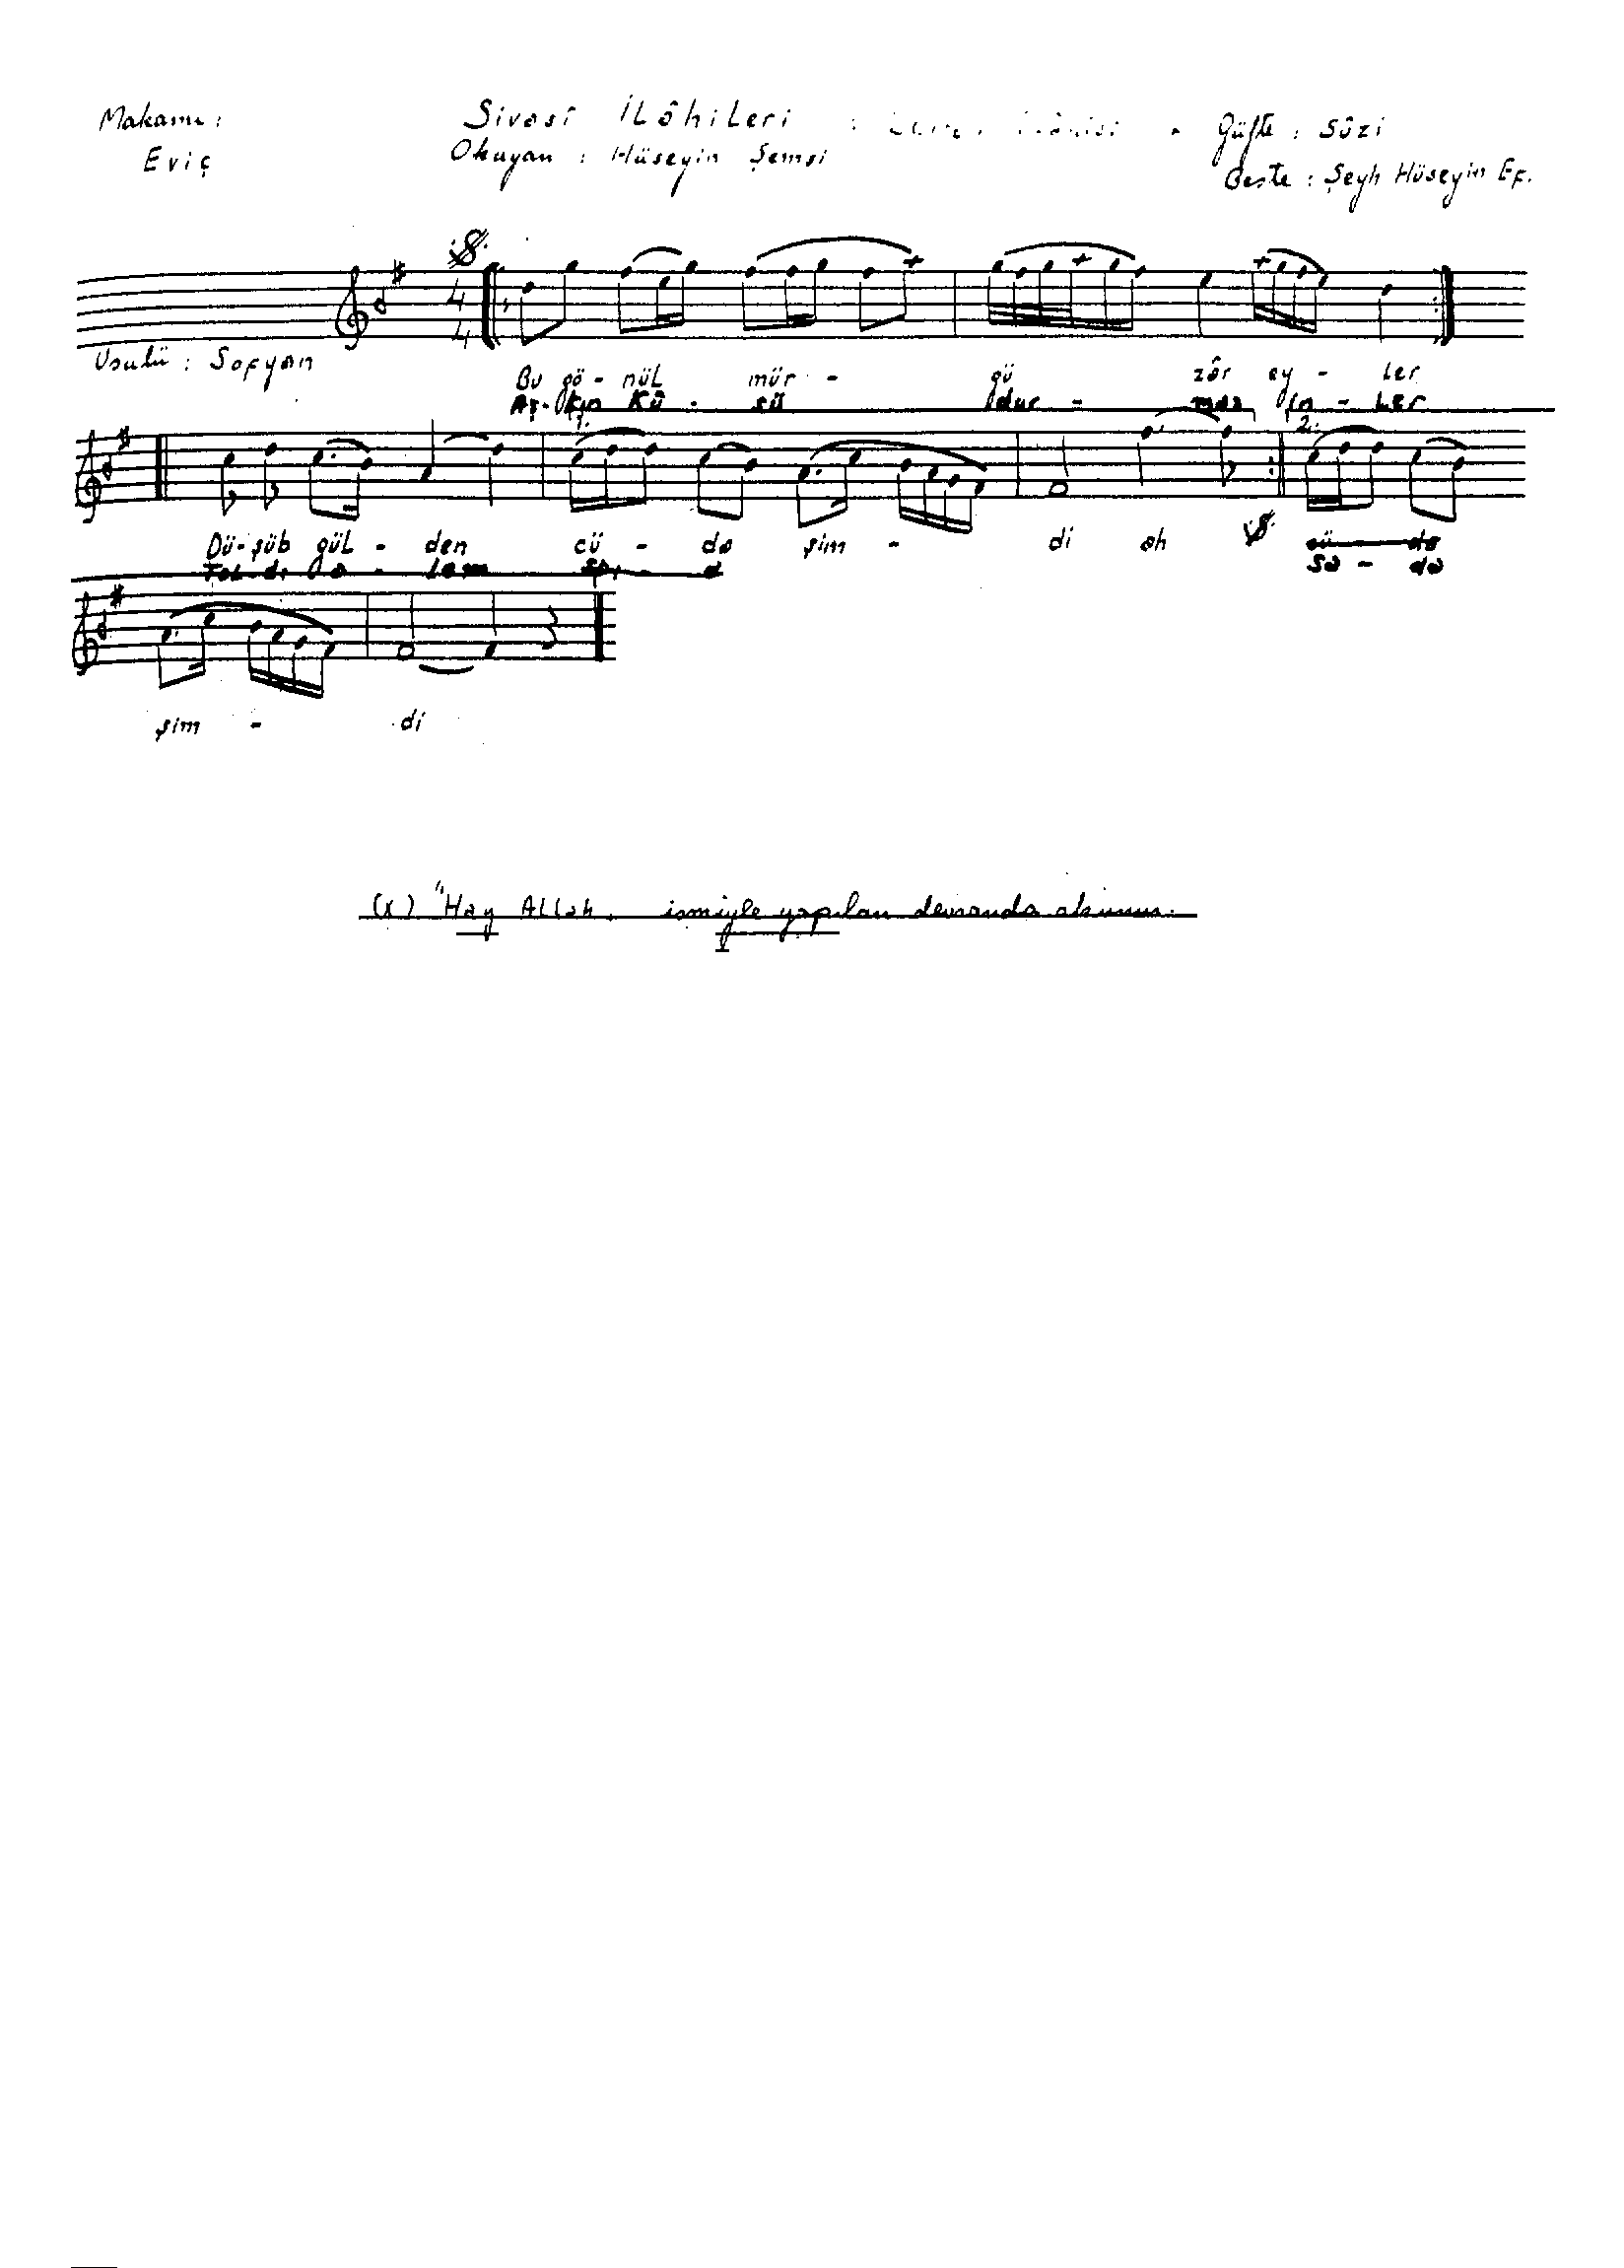 Makamı :
Eviç
Sivasî İLâhiLeri :
Okuyan : Hüseyin Şemsi
Güfte : Sûzi
Beste : Şeyh Hüseyin Ef.
4
4
Usulü : Sofyan
Bu gö - nül mür - gü zâr ey - ler
Aş - kın Kû - sü dur - maz in - Ler
1. 2.
Dü - şüb gül - den cü - da şim - di ah cü - da
sa - da
şim - di
(x) "Hay ALLah. ismiyle yapılan devranda okunur.